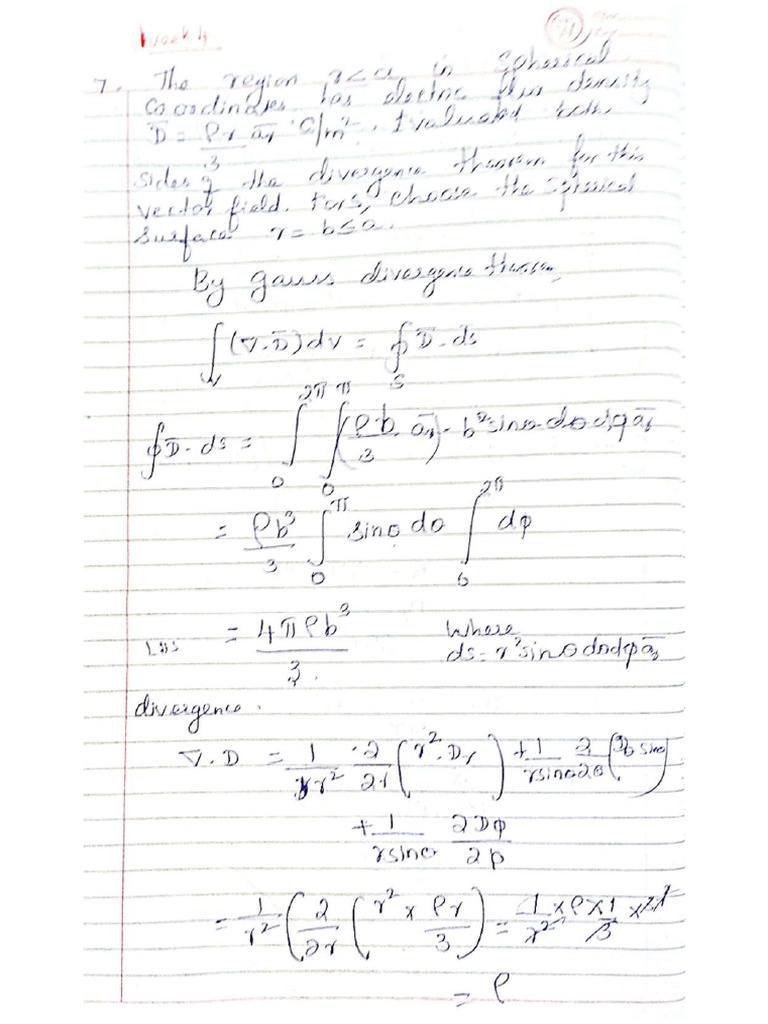 Week 4
7. The region r<a in spherical
coordinates has electric flux density
D̅ = ρr/3 a̅r C/m². Evaluated both
sides of the divergence theorem for this
vector field. For s, choose the spherical
surface r = b≤a.
By gauss divergence theorem
∫v (∇.D̅)dv = ∮s D̅.ds
∮D̅.ds = ∫0^2π ∫0^π (ρb/3 a̅r). b² sinθ dθ dφ a̅r
= ρb³/3 ∫0^π sinθ dθ ∫0^2π dφ
LHS = 4πρb³/3 Where
ds = r² sinθ dθ dφ a̅r
divergence.
∇.D = 1/r² ∂/∂r (r².Dr) + 1/r sinθ ∂/∂θ (Dθ sinθ)
+ 1/r sinθ ∂Dφ/∂φ
= 1/r² (∂/∂r (r² × ρr/3) = 1/r² × ρ × 1/3 ×
= ρ